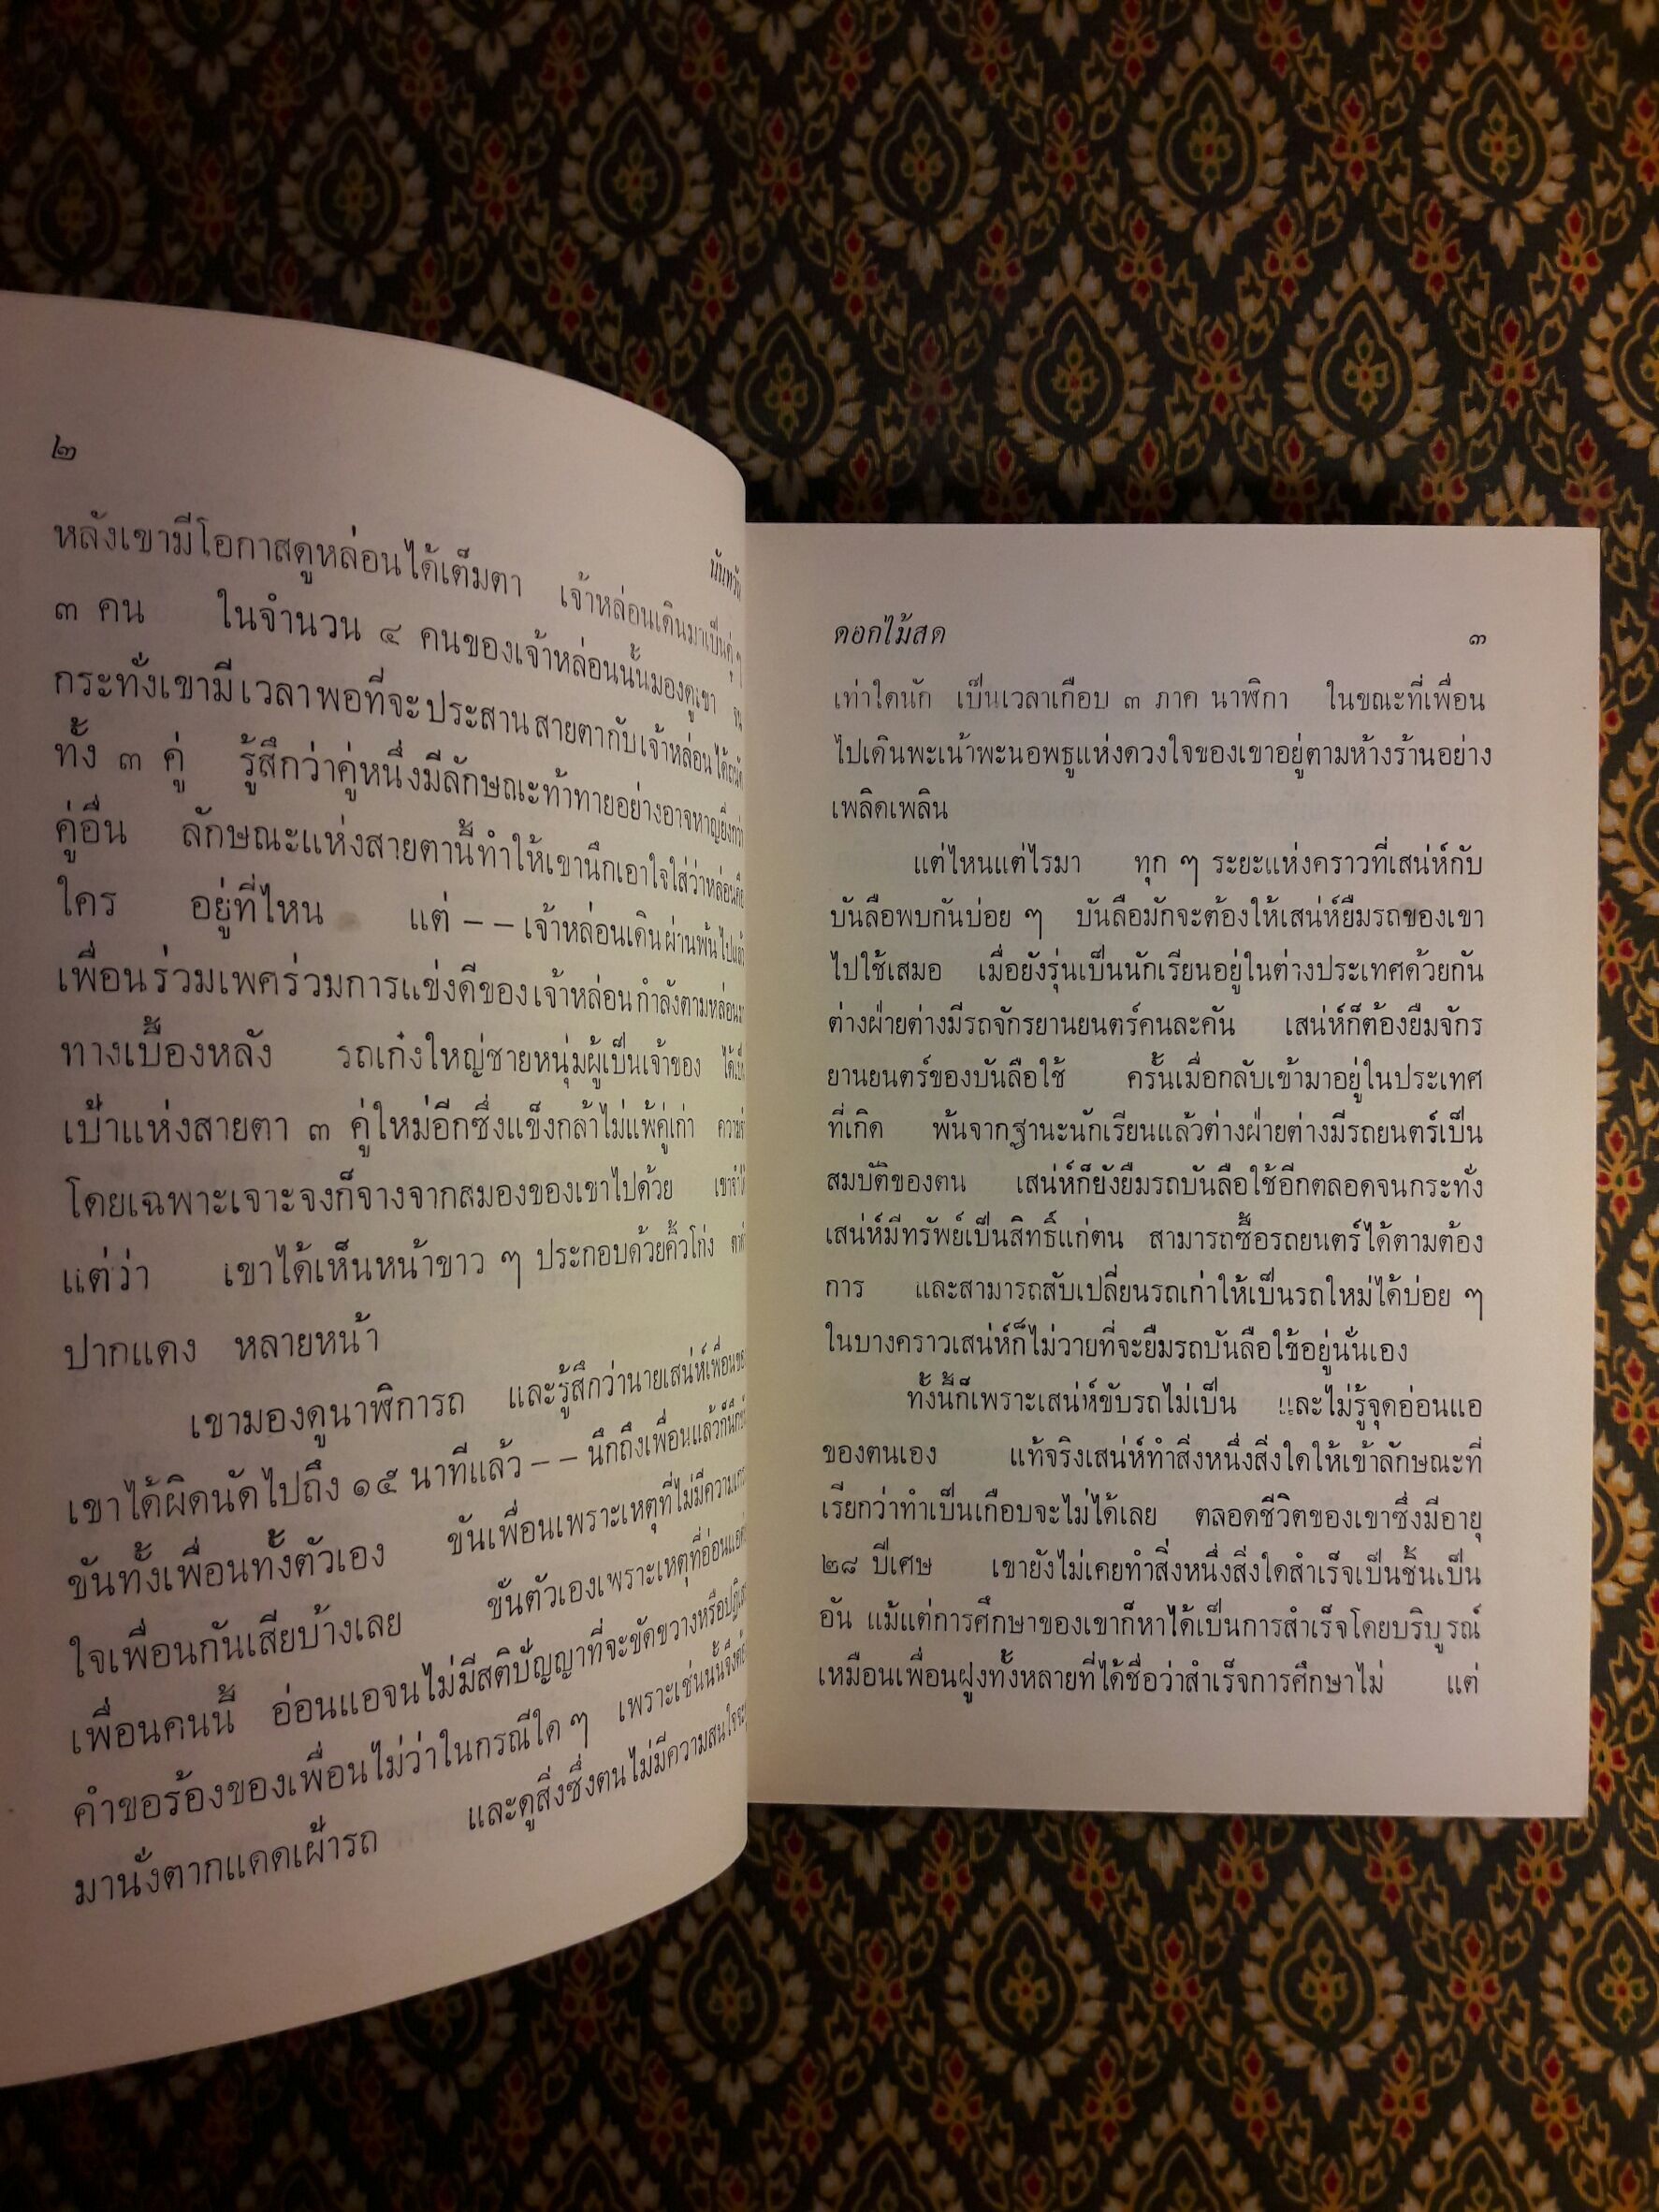 ๒
นันทวัน
หลังเขามีโอกาสดูหล่อนได้เต็มตา เจ้าหล่อนเดินมาเป็นคู่ ๆ
๓ คน ในจำนวน ๔ คนของเจ้าหล่อนนั้นมองดูเขา
กระทั่งเขามีเวลาพอที่จะประสานสายตากับเจ้าหล่อนได้ถนัด
ทั้ง ๓ คู่ รู้สึกว่าคู่หนึ่งมีลักษณะท้าทายอย่างอาจหาญยิ่งกว่า
คู่อื่น ลักษณะแห่งสายตานี้ทำให้เขานึกเอาใจใส่ว่าหล่อนคือ
ใคร อยู่ที่ไหน แต่ -- เจ้าหล่อนเดินผ่านพ้นไปแล้ว
เพื่อนร่วมเพศร่วมการแข่งดีของเจ้าหล่อนกำลังตามหล่อนมา
ทางเบื้องหลัง รถเก๋งใหญ่ชายหนุ่มผู้เป็นเจ้าของ ได้เป็น
เป้าแห่งสายตา ๓ คู่ใหม่อีกซึ่งแข็งกล้าไม่แพ้คู่เก่า
โดยเฉพาะเจาะจงก็จางจากสมองของเขาไปด้วย
แต่ว่า เขาได้เห็นหน้าขาว ๆ ประกอบด้วยคิ้วโก่ง
ปากแดง หลายหน้า
เขามองดูนาฬิการถ และรู้สึกว่านายเสน่ห์เพื่อนของ
เขาได้ผิดนัดไปถึง ๑๕ นาทีแล้ว -- นึกถึงเพื่อนแล้วก็นึก
ขันทั้งเพื่อนทั้งตัวเอง ขันเพื่อนเพราะเหตุที่ไม่มีความเกรง
ใจเพื่อนกันเสียบ้างเลย ขันตัวเองเพราะเหตุที่อ่อนแอ
เพื่อนคนนี้ อ่อนแอจนไม่มีสติปัญญาที่จะขัดขวางหรือปฏิเสธ
คำขอร้องของเพื่อนไม่ว่าในกรณีใด ๆ เพราะเช่นนั้นจึงต้อง
มานั่งตากแดดเฝ้ารถ และดูสิ่งซึ่งตนไม่มีความสนใจ
ดอกไม้สด ๓
เท่าใดนัก เป็นเวลาเกือบ ๓ ภาค นาฬิกา ในขณะที่เพื่อน
ไปเดินพะเน้าพะนอพธูแห่งดวงใจของเขาอยู่ตามห้างร้านอย่าง
เพลิดเพลิน
แต่ไหนแต่ไรมา ทุก ๆ ระยะแห่งคราวที่เสน่ห์กับ
บันลือพบกันบ่อย ๆ บันลือมักจะต้องให้เสน่ห์ยืมรถของเขา
ไปใช้เสมอ เมื่อยังรุ่นเป็นนักเรียนอยู่ในต่างประเทศด้วยกัน
ต่างฝ่ายต่างมีรถจักรยานยนตร์คนละคัน เสน่ห์ก็ต้องยืมจักร
ยานยนตร์ของบันลือใช้ ครั้นเมื่อกลับเข้ามาอยู่ในประเทศ
ที่เกิด พ้นจากฐานะนักเรียนแล้วต่างฝ่ายต่างมีรถยนตร์เป็น
สมบัติของตน เสน่ห์ก็ยังยืมรถบันลือใช้อีกตลอดจนกระทั่ง
เสน่ห์มีทรัพย์เป็นสิทธิ์แก่ตน สามารถซื้อรถยนตร์ได้ตามต้อง
การ และสามารถสับเปลี่ยนรถเก่าให้เป็นรถใหม่ได้บ่อย ๆ
ในบางคราวเสน่ห์ก็ไม่วายที่จะยืมรถบันลือใช้อยู่นั่นเอง
ทั้งนี้ก็เพราะเสน่ห์ขับรถไม่เป็น และไม่รู้จุดอ่อนแอ
ของตนเอง แท้จริงเสน่ห์ทำสิ่งหนึ่งสิ่งใดให้เข้าลักษณะที่
เรียกว่าทำเป็นเกือบจะไม่ได้เลย ตลอดชีวิตของเขาซึ่งมีอายุ
๒๘ ปีเศษ เขายังไม่เคยทำสิ่งหนึ่งสิ่งใดสำเร็จเป็นชิ้นเป็น
อัน แม้แต่การศึกษาของเขาก็หาได้เป็นการสำเร็จโดยบริบูรณ์
เหมือนเพื่อนฝูงทั้งหลายที่ได้ชื่อว่าสำเร็จการศึกษาไม่ แต่